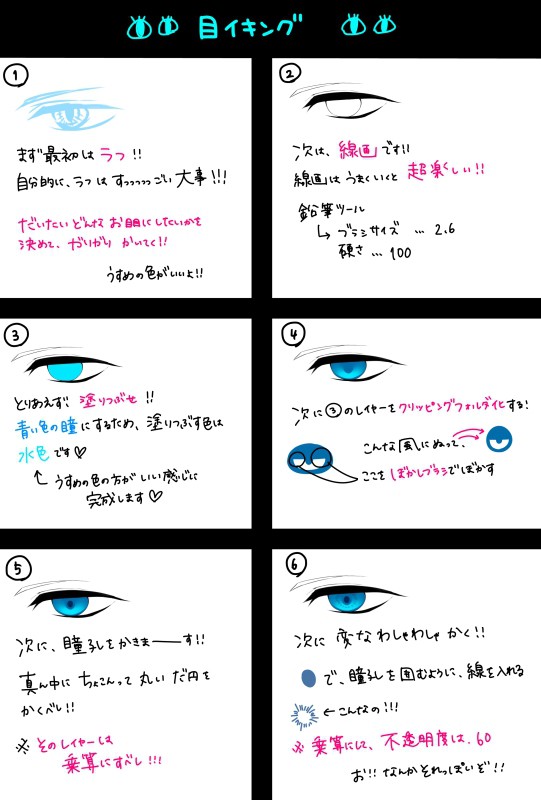 目イキング
①
まず最初はラフ!!
自分的に、ラフはすっっっっっごい大事!!!
だいたいどんなお眼にしたいかを
決めて、ガリガリかいてく!!
うすめの色がいいよ!!
②
次は、線画です!!
線画はうまくいくと超楽しい!!
鉛筆ツール
↳ブラシサイズ…2.6
硬さ…100
③
とりあえず!塗りつぶせ!!
青い色の瞳にするため、塗りつぶす色は
水色です♡
↑うすめの色の方がいい感じに
完成します♡
④
次に③のレイヤーをクリッピングフォルダ化する!
こんな風にぬって、
ここをぼかしブラシでぼかす
⑤
次に、瞳孔をかきまーーーす!!
真ん中にちょこんって丸いだ円を
かくべし!!
※そのレイヤーは
乗算にすべし!!!
⑥
次に変なわしゃわしゃかく!!
で、瞳孔を囲むように、線を入れる
←こんなの!!!
※乗算にし、不透明度は.60
お!!なんかそれっぽいぞ!!